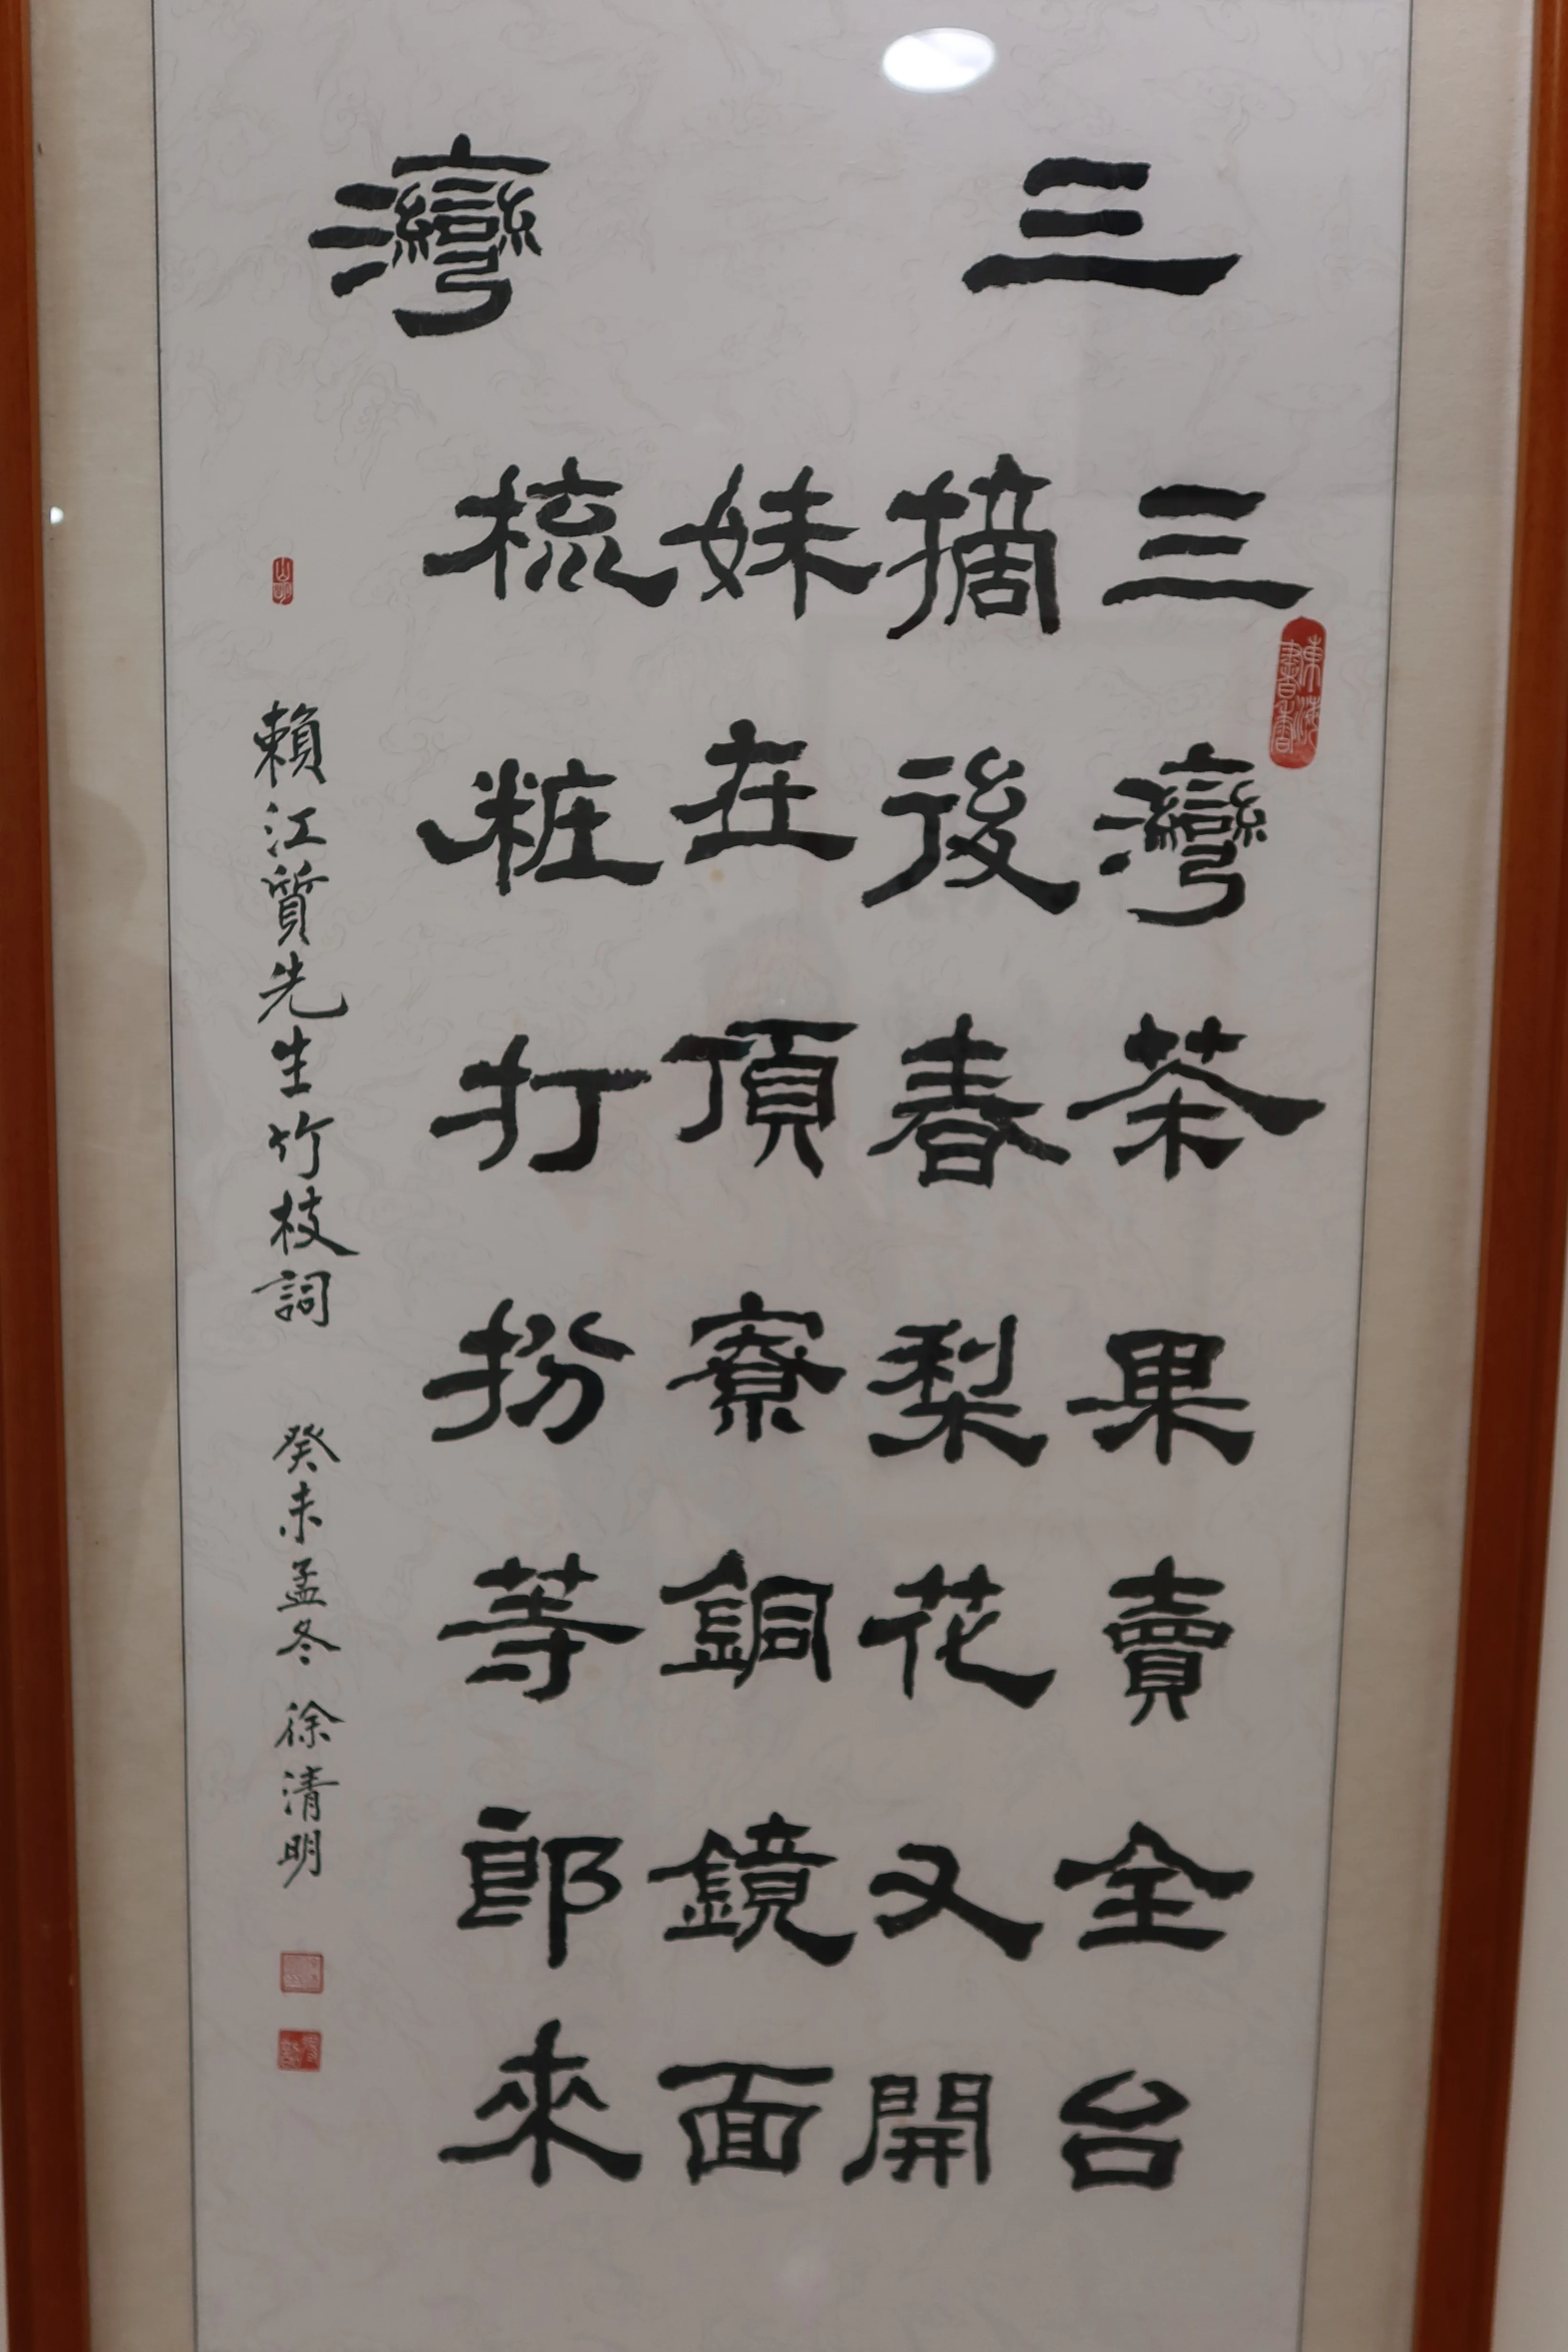 三灣
三灣茶果賣全台
摘後春梨花又開
妹在頂寮銅鏡面
梳粧打扮等郎來
賴江質先生竹枝詞 癸未孟冬 徐清明